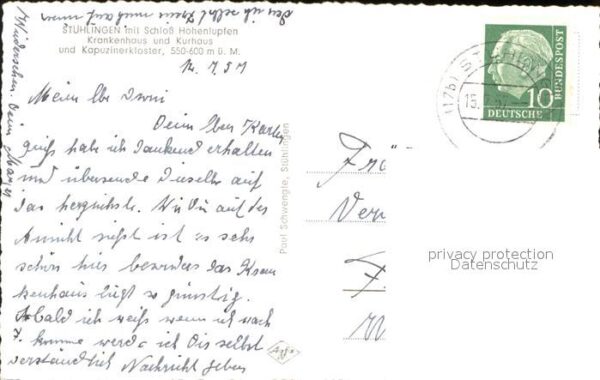 STÜHLINGEN mit Schloß Hohenlupfen
Krankenhaus und Kurhaus
und Kapuzinerkloster, 550-600 m ü. M.
Mein lbr
Deine lben Karten
gruß hab ich dankend erhalten
und übersende Dieselbe auf
das herzlichste. Wie Du auf der
Ansicht siehst ist es sehr
schön hier besonders das Kran
kenhaus liegt so günstig.
Sobald ich weiß wenn ich nach
F. komme werde ich Dir selbst
verständlich Nachricht geben
Wiedersehen Deine
Paul Schwengle, Stühlingen
Frä
Ver
F.
(17b)
15.7.57
DEUTSCHE
BUNDESPOST
10
privacy protection
Datenschutz